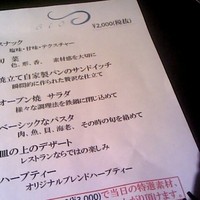 ¥2,000(税抜)
スナック
塩味・甘味・テクスチャー
旬 菜
色、形、香、 素材感を大切に
焼立て自家製パンのサンドイッチ
瞬間的に作られた贅沢な仕立て
オーブン焼 サラダ
様々な調理法を鉄鍋に閉じ込めて
ベーシックなパスタ
肉、魚、貝、海老、その時の旬を絡めて
皿の上のデザート
レストランならではの楽しみ
ハーブティー
オリジナルブレンドハーブティー
¥3,000)で当日の特選素材、